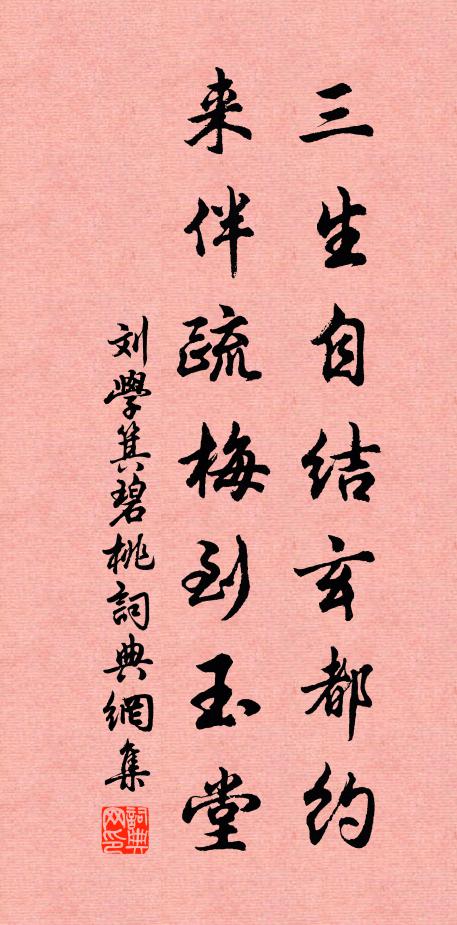 三生自结玄都约
来伴疏梅到玉堂
刘学箕碧桃詞典網集
詞典网印